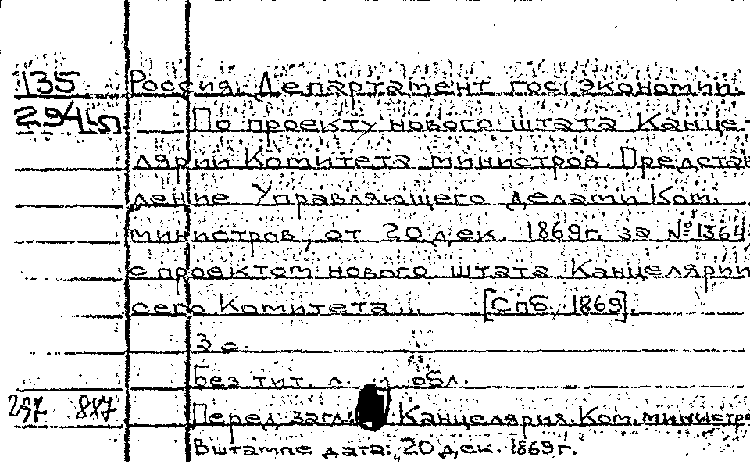 135 Россия. Департамент гос. экономии.
294 По проекту нового штата Канце-
лярии Комитета министров. Представ
ление Управляющего делами Ком.
министров от 20 дек. 1869 г. за № 1364
с проектом нового штата Канцелярии
сего Комитета... [Спб, 1869].
3 с.
Без тит. л. и обл.
297 887 Перед загл.: Канцелярия. Ком. министр
В штампе дата: 20 дек. 1869 г.